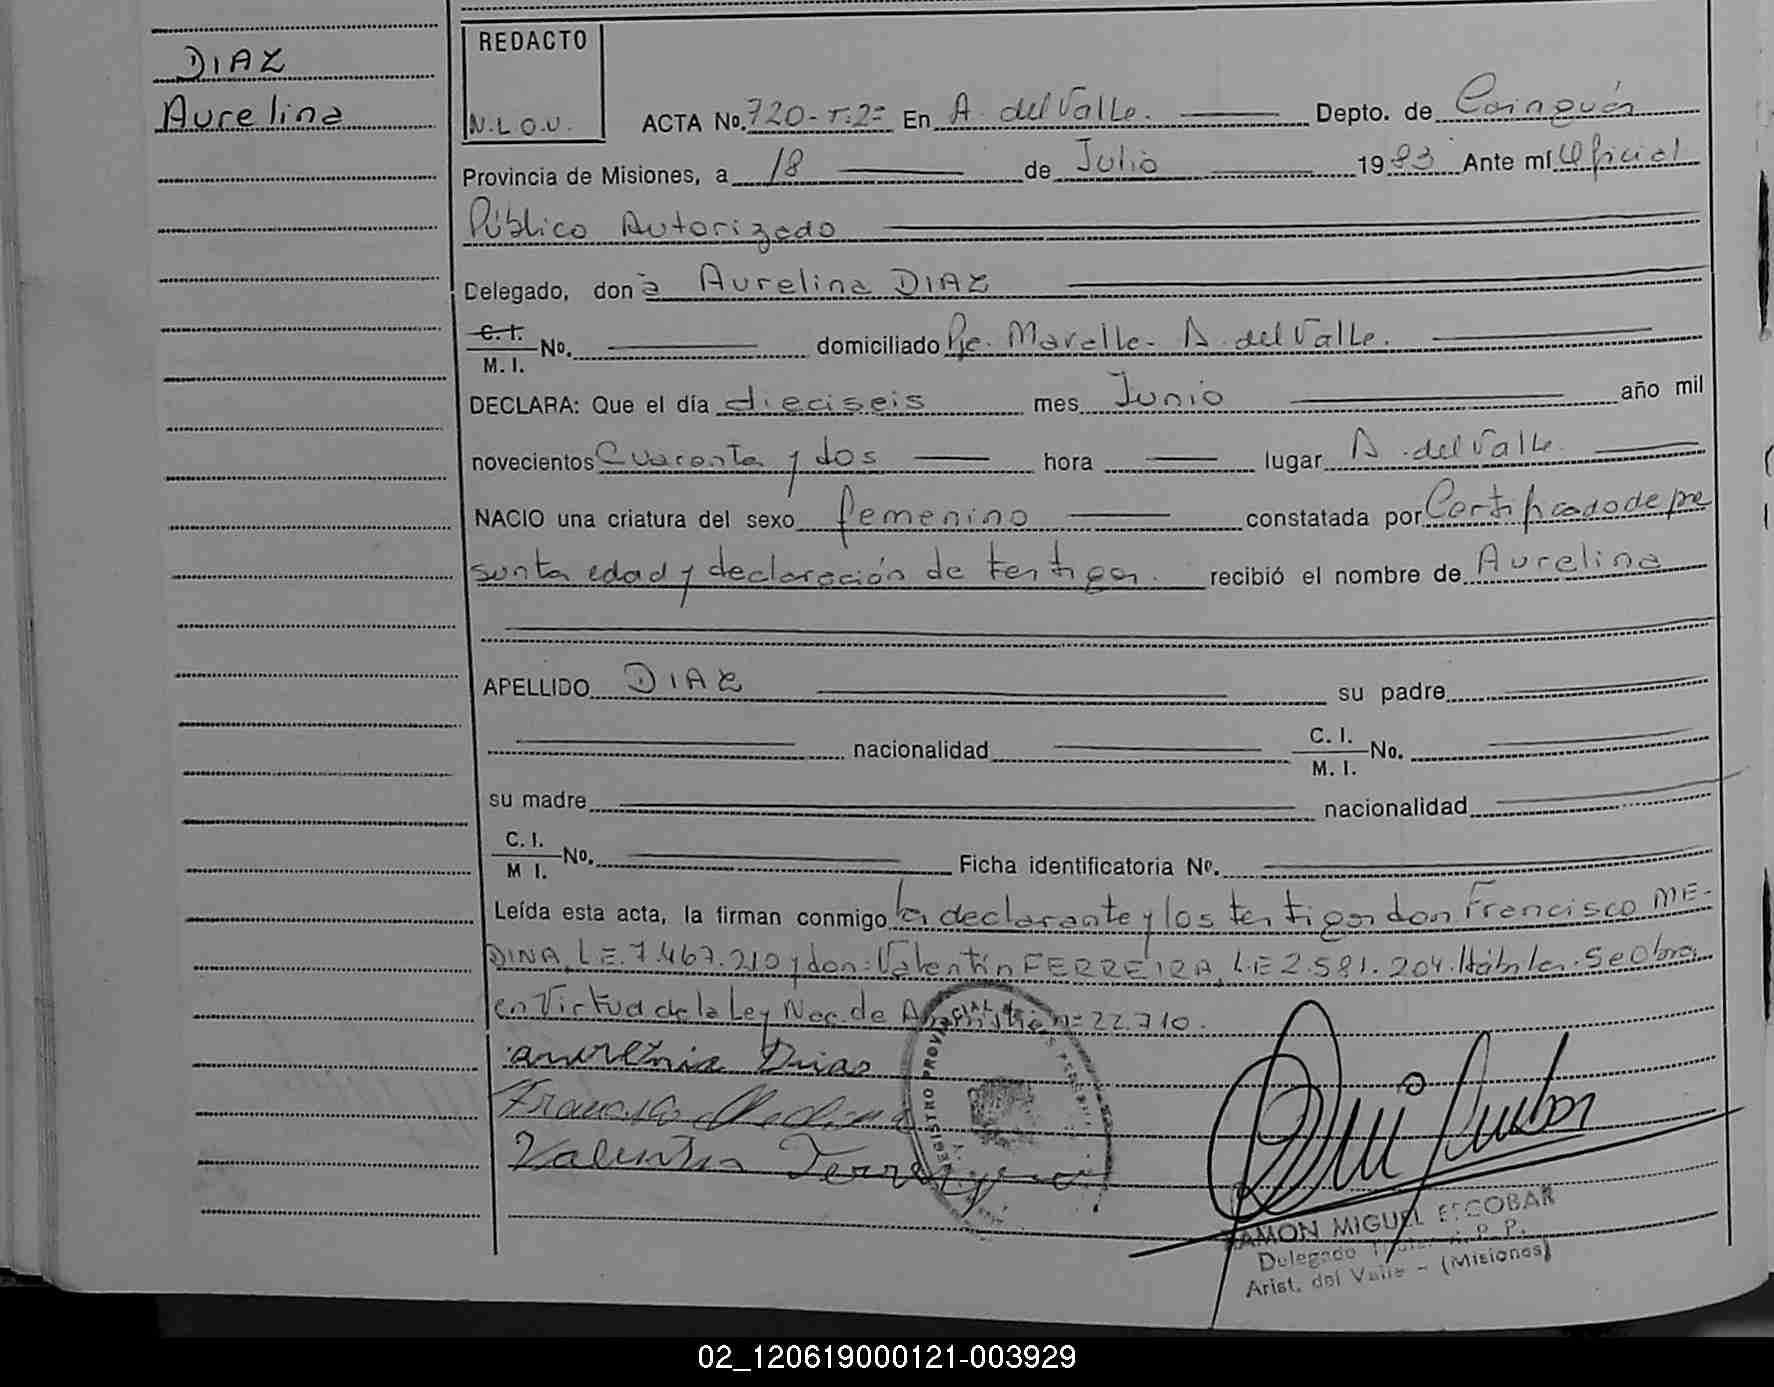 DIAZ
Aurelina
REDACTO
N.L.O.U.
ACTA No. 720-T:2= En A. del Valle. Depto. de Cainguás
Provincia de Misiones, a 18 de Julio 1983 Ante mí Oficial
Público Autorizado
Delegado, don a Aurelina DIAZ
C. I.
M. I. No. domiciliado Pje. Marelle- A. del Valle.
DECLARA: Que el día dieciseis mes Junio año mil
novecientos Cuarenta y dos hora lugar A. del Valle.
NACIO una criatura del sexo femenino constatada por Certificado de pre
sunta edad y declaración de testigos. recibió el nombre de Aurelina
APELLIDO DIAZ su padre
nacionalidad C. I.
M. I. No.
su madre nacionalidad
C. I.
M I. No. Ficha identificatoria No.
Leída esta acta, la firman conmigo la declarante y los testigos don Francisco ME-
DINA, L.E. 7.467.210 y don: Valentín FERREIRA, L.E 2.581.204. Hábiles. Se Obra
en Virtud de la Ley Nac. de Amnistía n= 22.710.
aurenia Dias
Francisco Medina
Valentin
REGISTRO PROVINCIAL DE LAS PERSONAS
RAMON MIGUEL ESCOBAR
Delegado Titular R. P. P.
Arist. del Valle - (Misiones)
02_120619000121-003929